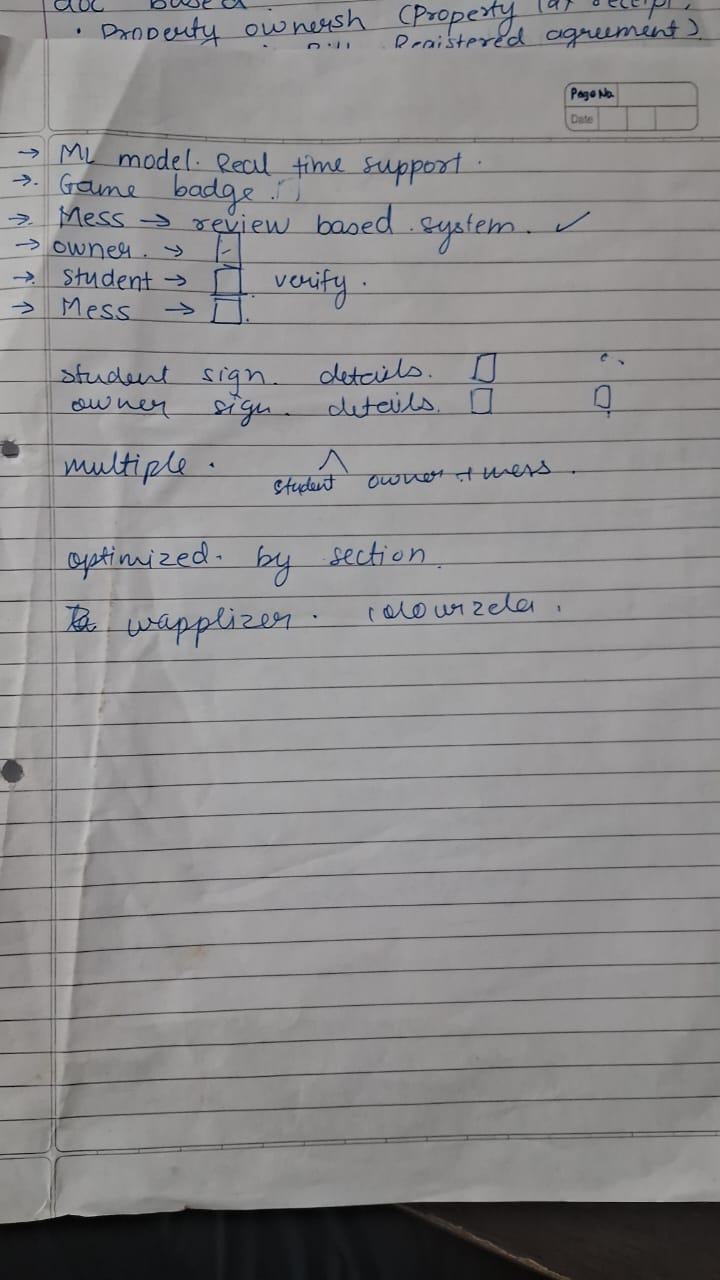 doc based
• Property ownersh (Property Tax
Registered agreement)
Page No.
Date
→ ML model. Real time support.
→ Game badge.
→ Mess → review based system. ✓
→ owner. →
→ student → verify.
→ Mess →
student sign details.
owner sign details.
multiple. student owner + mess.
optimized. by section.
wapplizer.